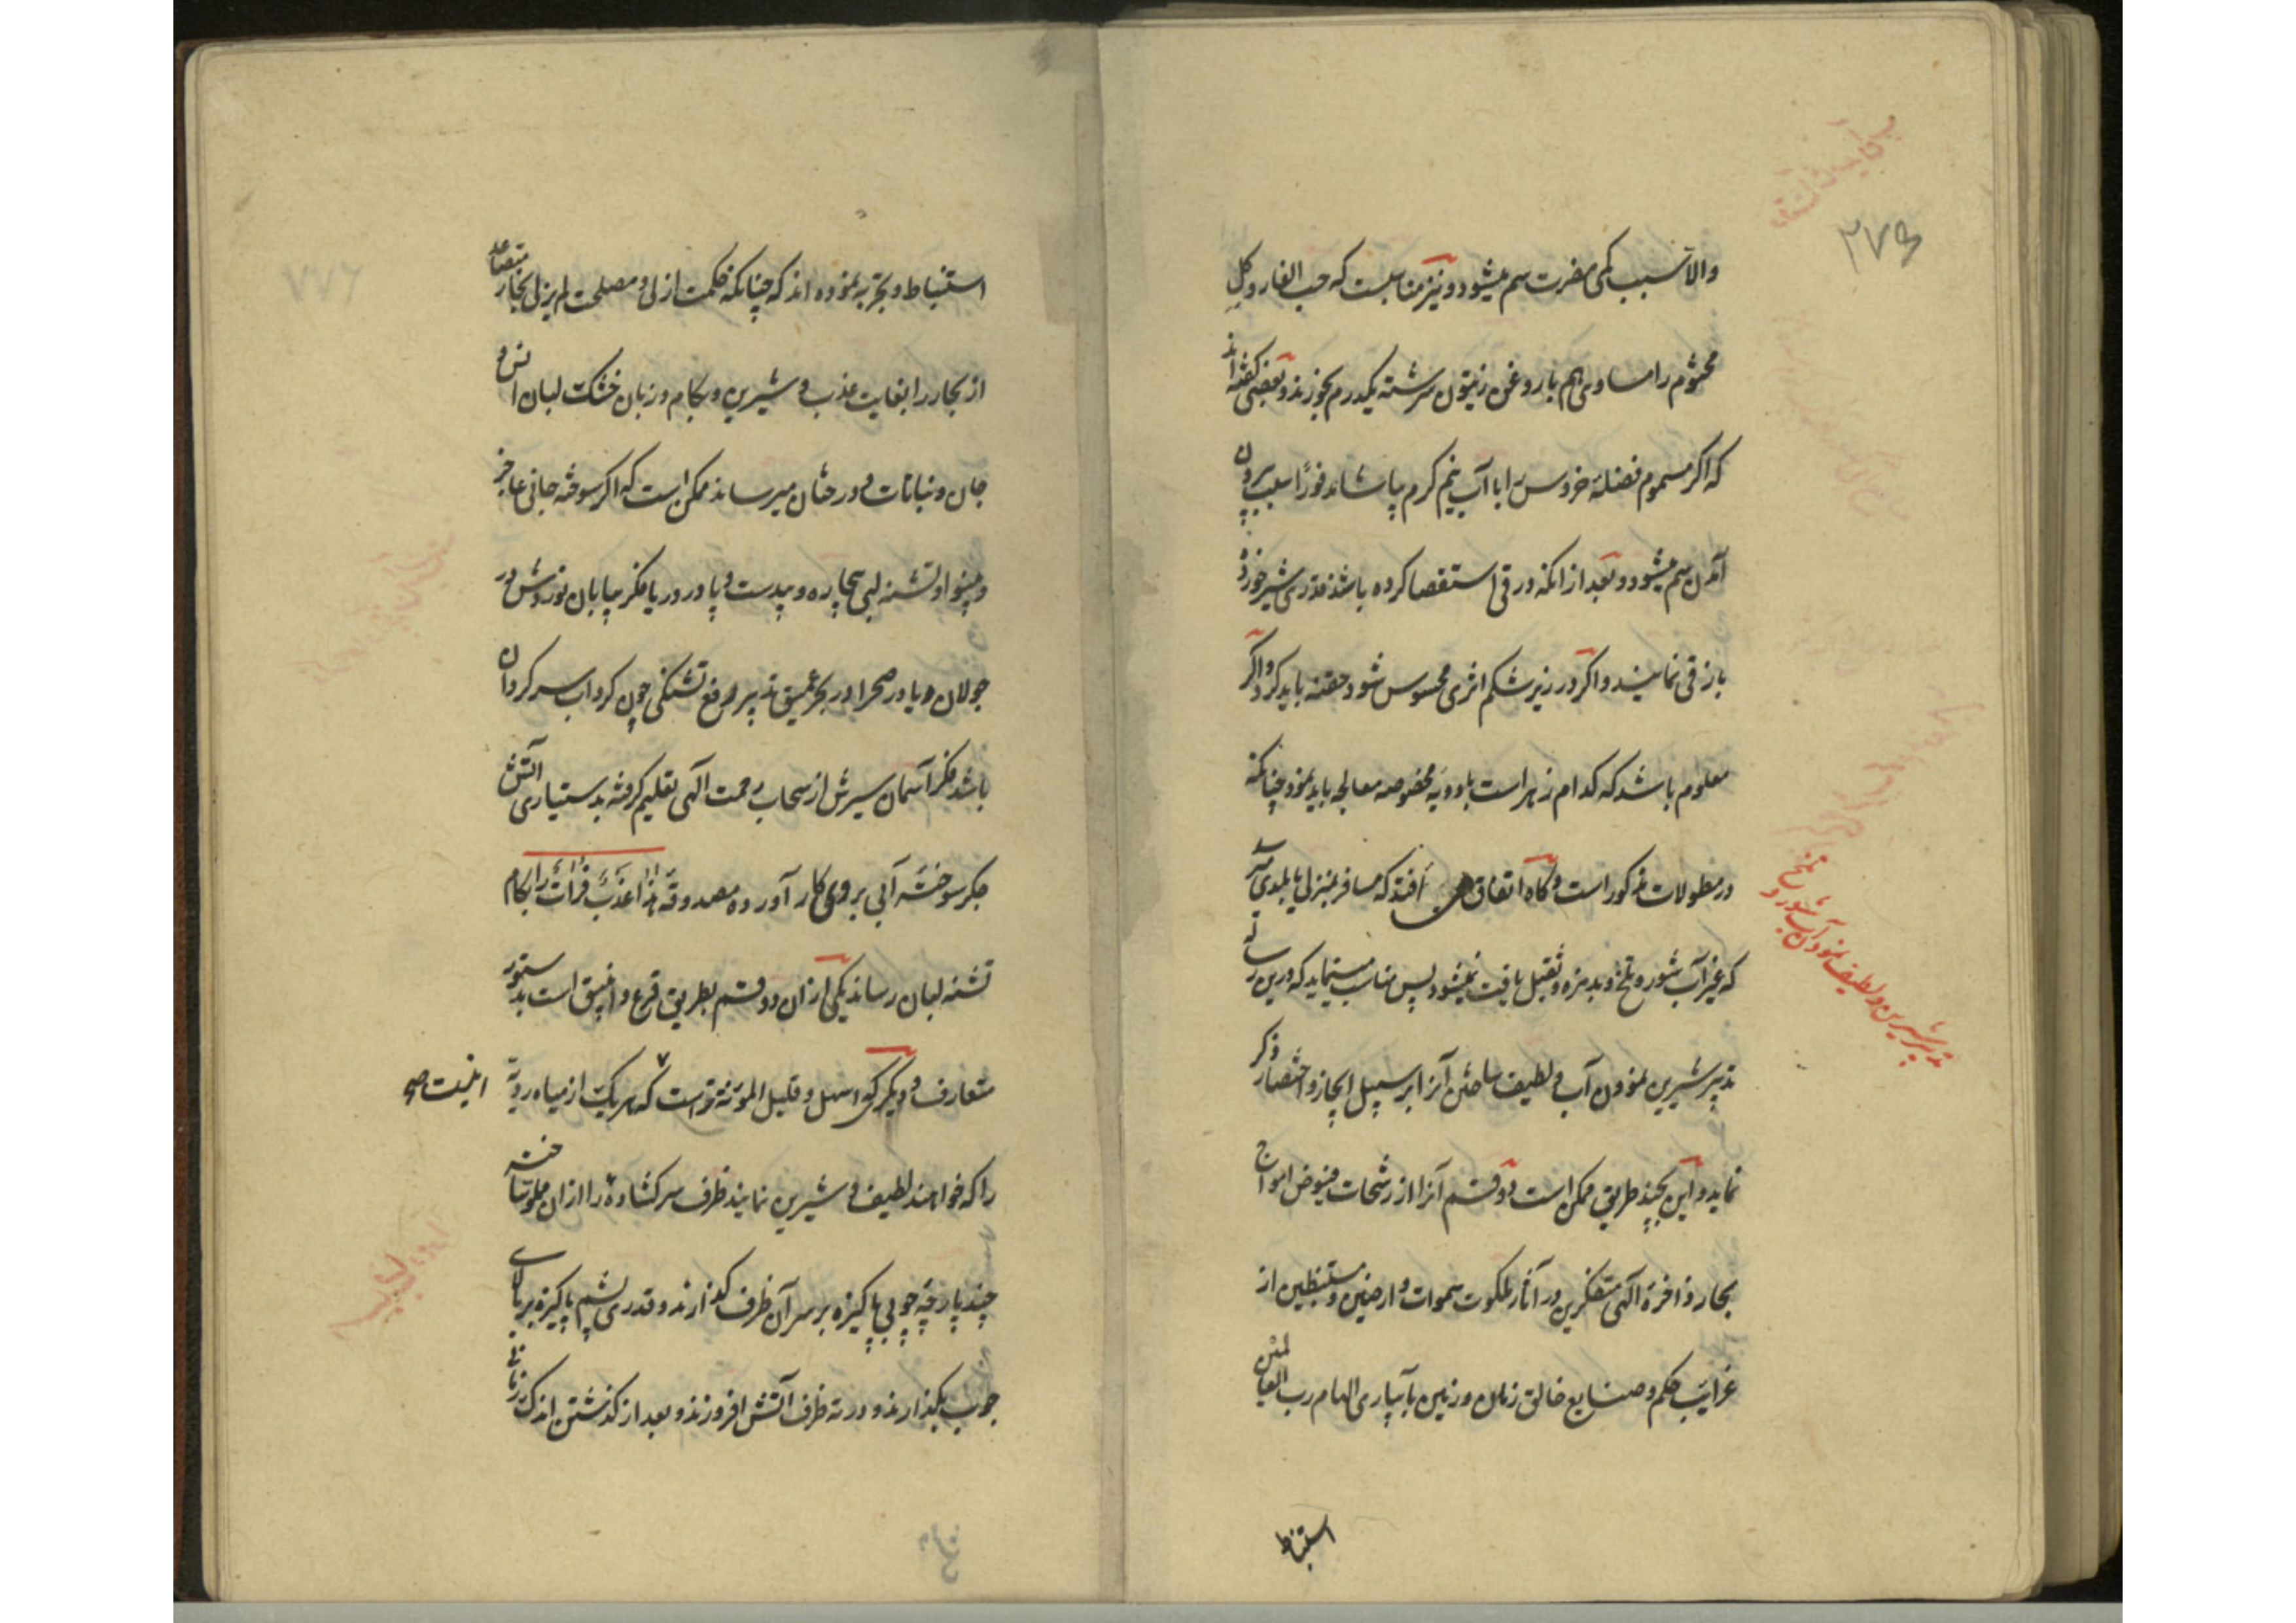 ۲۷۶
والا سبب کمی مضرت سم میشود و نیز مناسبست که حب الغار و کل
مختوم را مساوی هم با روغن زیتون سرشته یکدرم بخورند و بعضی کفته اند
که اکر مسموم فضلهٔ خروس را با آب نیم کرم بیاشامد فوراً سبب بیرون
آمدن سم میشود و بعد از انکه در قی استقصا کرده باشد قدری شیر خورده
باز قی نمایند و اکر در زیر شکم اثری محسوس شود حقنه باید کرد و اکر
معلوم باشد که کدام زهر است بادویهٔ مخصوصه معالجه باید نمود چنانکه
در مطولات مذکور است و کاه اتفاق افتد که مسافر بمنزلی یا بلدی رسد
که غیر آب شور و تلخ و بدمزه و ثقیل یافت نمیشود پس مناسب مینماید که درین رساله
تدبیر شیرین نمودن آب و لطیف ساختن آنرا بر سبیل ایجاز و اختصار ذکر
نماید و این بچند طریق ممکن است دو قسم آنرا از رشحات فیوض امواج
بحار ذاخرهٔ الهی متفکرین در آثار ملکوت سموات و ارضین و مستنبطین از
غرایب حکم و صنایع خالق زمان و زمین بآبیاری الهام رب العالمین
تدبیر شیرین و لطیف نمودن آب شور و تلخ
استنباط
استنباط و تجربه نموده اند که چنانکه حکمت ازلی و مصلحت لم یزلی بخار متصاعد
از بحار را بغایت عذب و شیرین و بکام و زبان خشک لبان انس و
جان و نباتات و درختان میرساند ممکن است که اکر سوخته جانی عاجز
و بینوا و تشنه لبی بیچاره و بیدست و پا در دریا فکر بیابان نوردش در
جولان و یا در صحرا در بحر عمیق تدبیر رفع تشنکی چون کرداب سرکردان
باشد فکر آسمان سیرش از سحاب رحمت الهی تعلیم کرفته بدستیاری آتش
جکر سوخته آبی بر روی کار آورده مصدوقهٔ هذا عذب فرات را بکام
تشنه لبان رساند یکی ازان دو قسم بطریق قرع و انبیق است بدستور
متعارف و دیکر که اسهل و قلیل المؤنه تر است که هر یک از میاه ردیه
اینست صح
را که خواهند لطیف و شیرین نمایند ظرف سر کشاده را ازان مملو ساخته
چند پارچه چوبی پاکیزه بر سر آن ظرف کذارند و قدری پشم پاکیزه بر بالای
چوب بکذارند و در ته ظرف آتش افروزند و بعد از کذشتن اندک زمانی